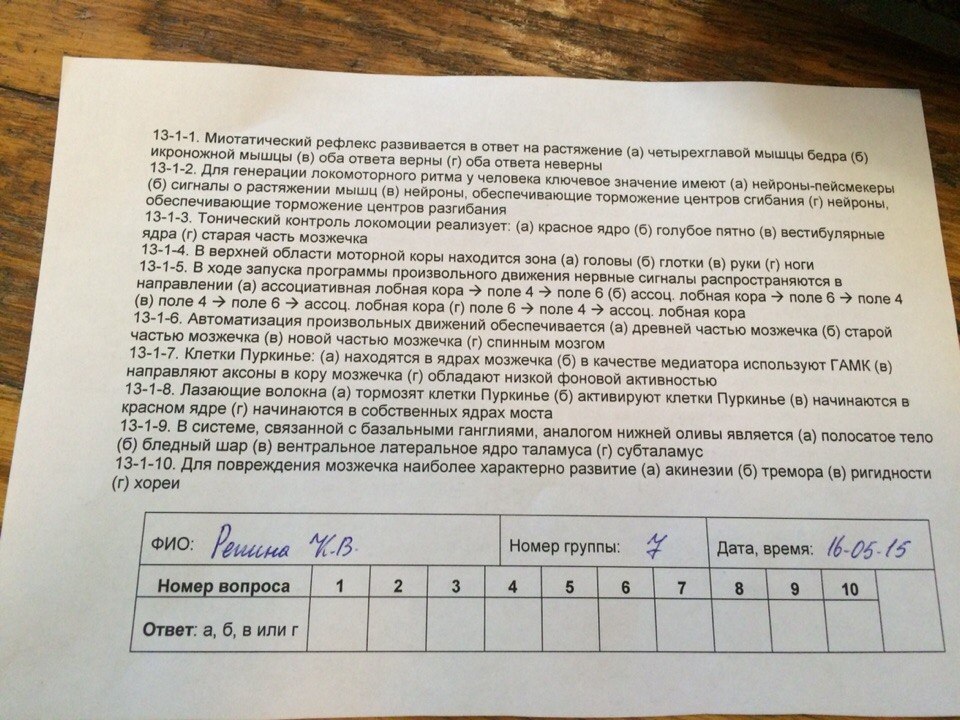 13-1-1. Миотатический рефлекс развивается в ответ на растяжение (а) четырехглавой мышцы бедра (б)
икроножной мышцы (в) оба ответа верны (г) оба ответа неверны
13-1-2. Для генерации локомоторного ритма у человека ключевое значение имеют (а) нейроны-пейсмекеры
(б) сигналы о растяжении мышц (в) нейроны, обеспечивающие торможение центров сгибания (г) нейроны,
обеспечивающие торможение центров разгибания
13-1-3. Тонический контроль локомоции реализует: (а) красное ядро (б) голубое пятно (в) вестибулярные
ядра (г) старая часть мозжечка
13-1-4. В верхней области моторной коры находится зона (а) головы (б) глотки (в) руки (г) ноги
13-1-5. В ходе запуска программы произвольного движения нервные сигналы распространяются в
направлении (а) ассоциативная лобная кора → поле 4 → поле 6 (б) ассоц. лобная кора → поле 6 → поле 4
(в) поле 4 → поле 6 → ассоц. лобная кора (г) поле 6 → поле 4 → ассоц. лобная кора
13-1-6. Автоматизация произвольных движений обеспечивается (а) древней частью мозжечка (б) старой
частью мозжечка (в) новой частью мозжечка (г) спинным мозгом
13-1-7. Клетки Пуркинье: (а) находятся в ядрах мозжечка (б) в качестве медиатора используют ГАМК (в)
направляют аксоны в кору мозжечка (г) обладают низкой фоновой активностью
13-1-8. Лазающие волокна (а) тормозят клетки Пуркинье (б) активируют клетки Пуркинье (в) начинаются в
красном ядре (г) начинаются в собственных ядрах моста
13-1-9. В системе, связанной с базальными ганглиями, аналогом нижней оливы является (а) полосатое тело
(б) бледный шар (в) вентральное латеральное ядро таламуса (г) субталамус
13-1-10. Для повреждения мозжечка наиболее характерно развитие (а) акинезии (б) тремора (в) ригидности
(г) хореи
ФИО: Репина К.В. Номер группы: 7 Дата, время: 16-05-15
Номер вопроса 1 2 3 4 5 6 7 8 9 10
Ответ: а, б, в или г